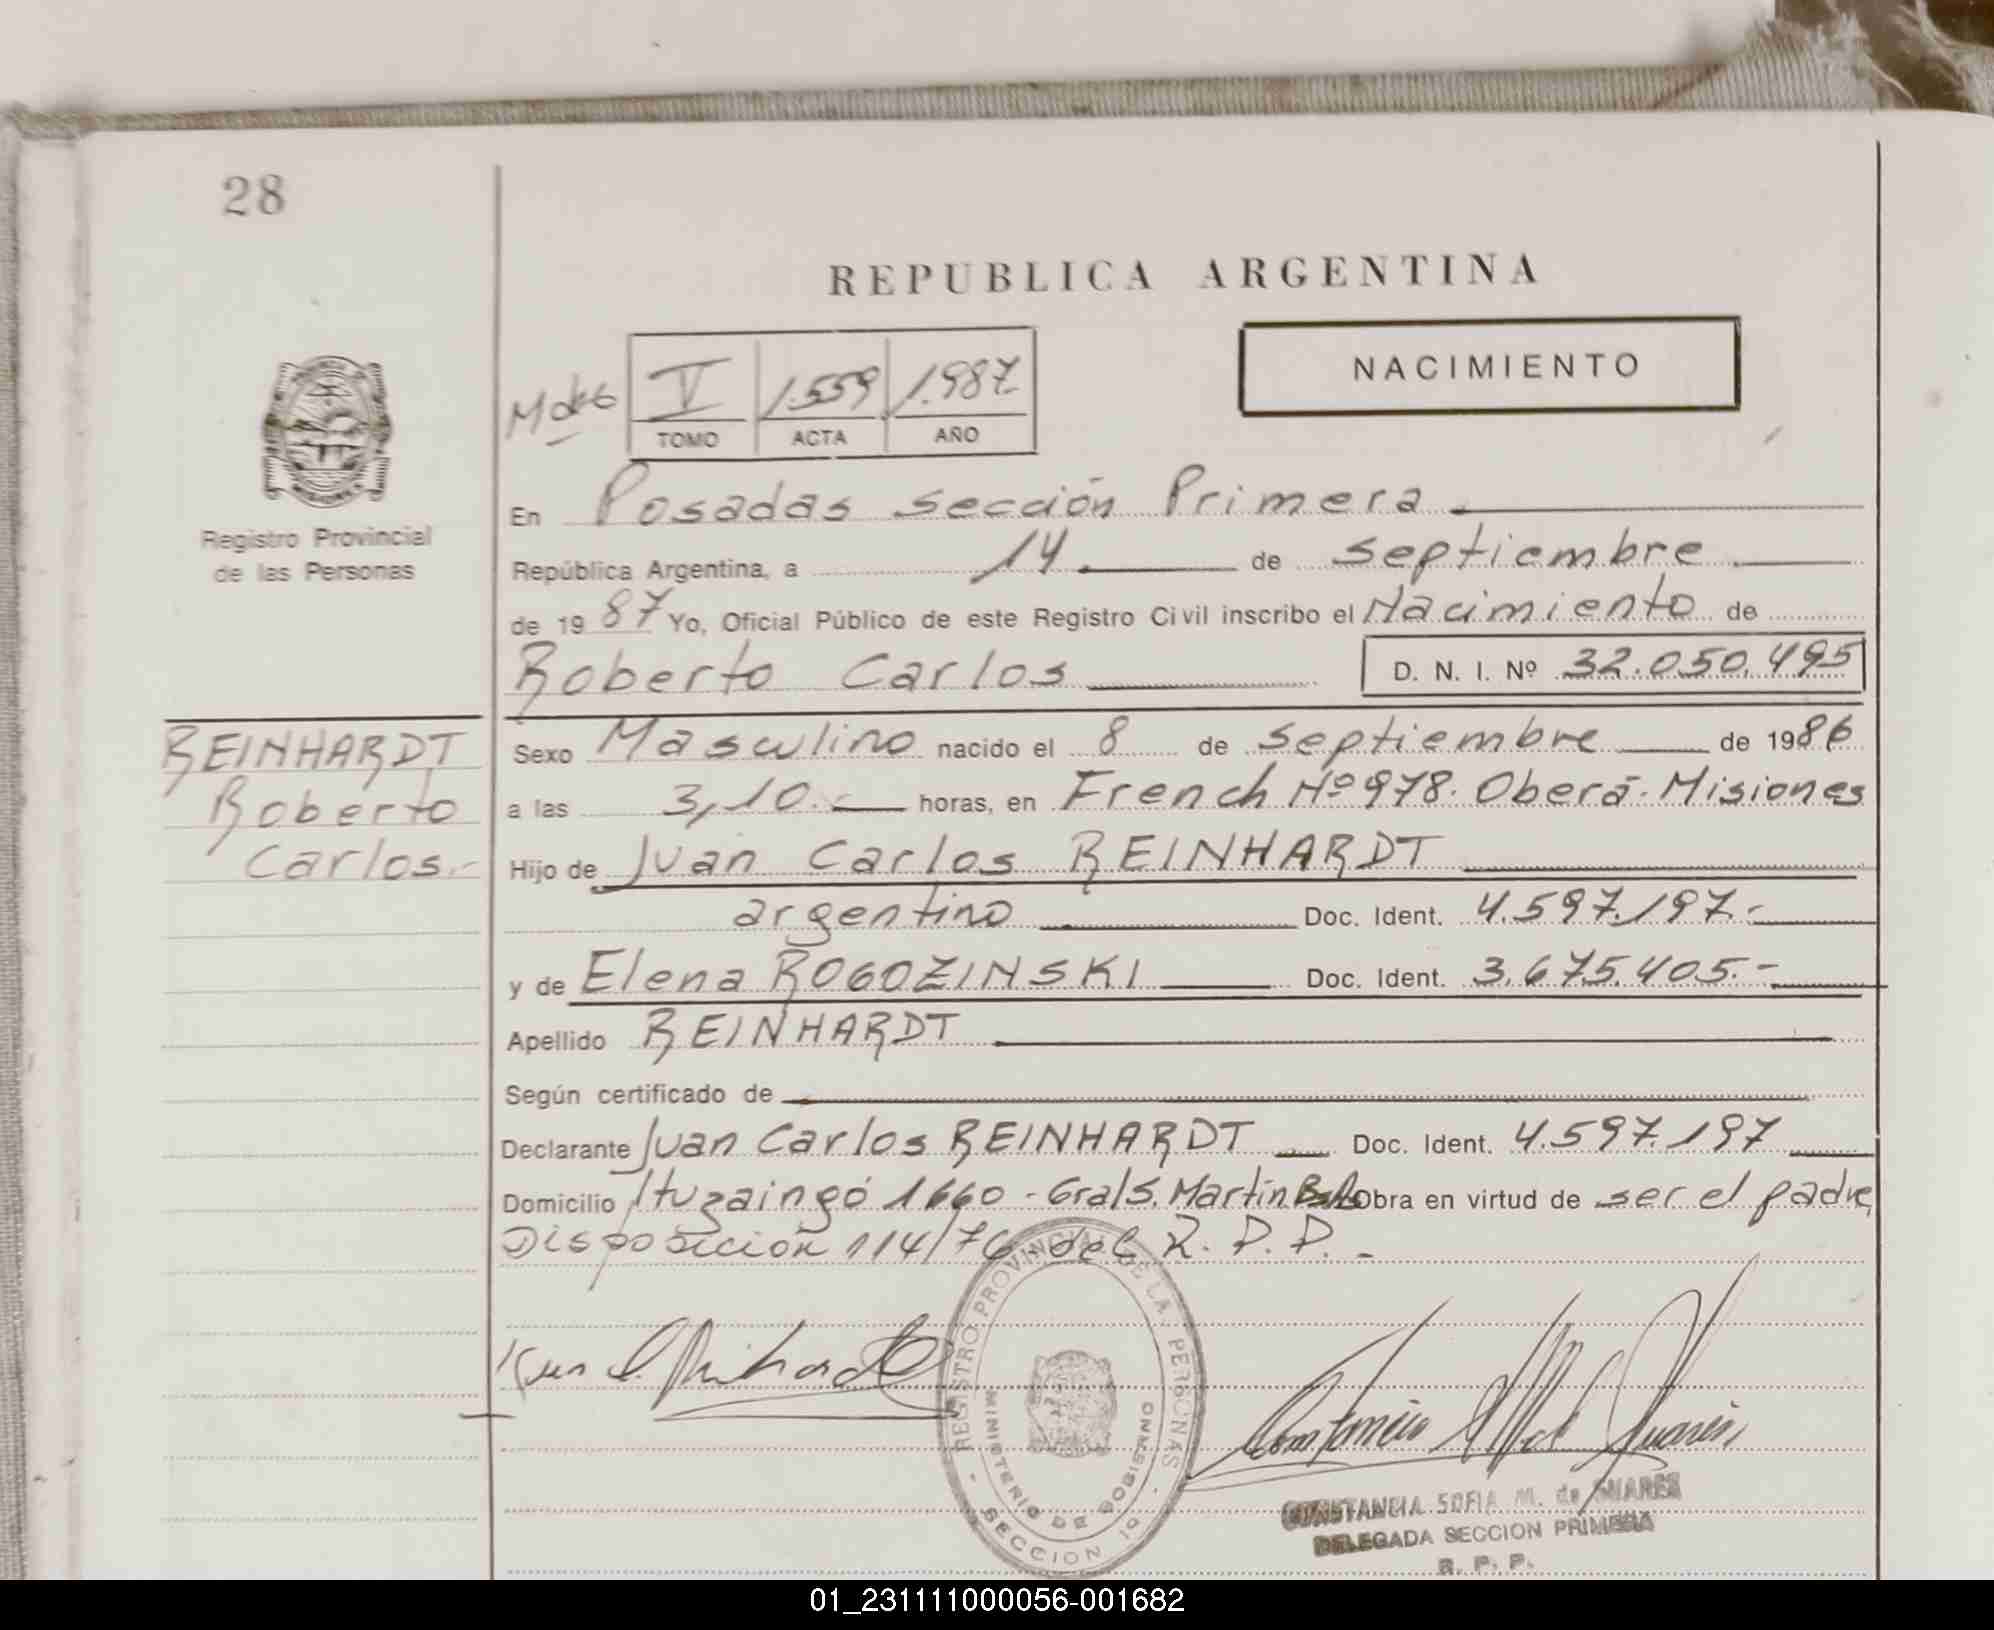 28
REPUBLICA ARGENTINA
NACIMIENTO
V 1.559 1.987
TOMO ACTA AÑO
Registro Provincial
de las Personas
En Posadas sección Primera
República Argentina, a 14 de septiembre
de 1987 Yo, Oficial Público de este Registro Civil inscribo el Nacimiento de
Roberto Carlos D. N. I. Nº 32.050.495
REINHARDT
Roberto
Carlos.-
Sexo Masculino nacido el 8 de septiembre de 1986
a las 3,10.- horas, en French Nº 978. Oberá- Misiones
Hijo de Juan Carlos REINHARDT
argentino Doc. Ident. 4.597.197.-
y de Elena ROGOZINSKI Doc. Ident. 3.675.405.-
Apellido REINHARDT
Según certificado de
Declarante Juan Carlos REINHARDT Doc. Ident. 4.597.197
Domicilio Ituzaingó 1660 - Gral S. Martín Bs As Obra en virtud de ser el padre,
Disposición 114/76 - del R. P. P. -
REGISTRO PROVINCIAL DE LA PERSONAS
MINISTERIO DE GOBIERNO
SECCION 1º
CONSTANCIA SOFIA M. de SUARES
DELEGADA SECCION PRIMERA
R. P. P.
01_231111000056-001682